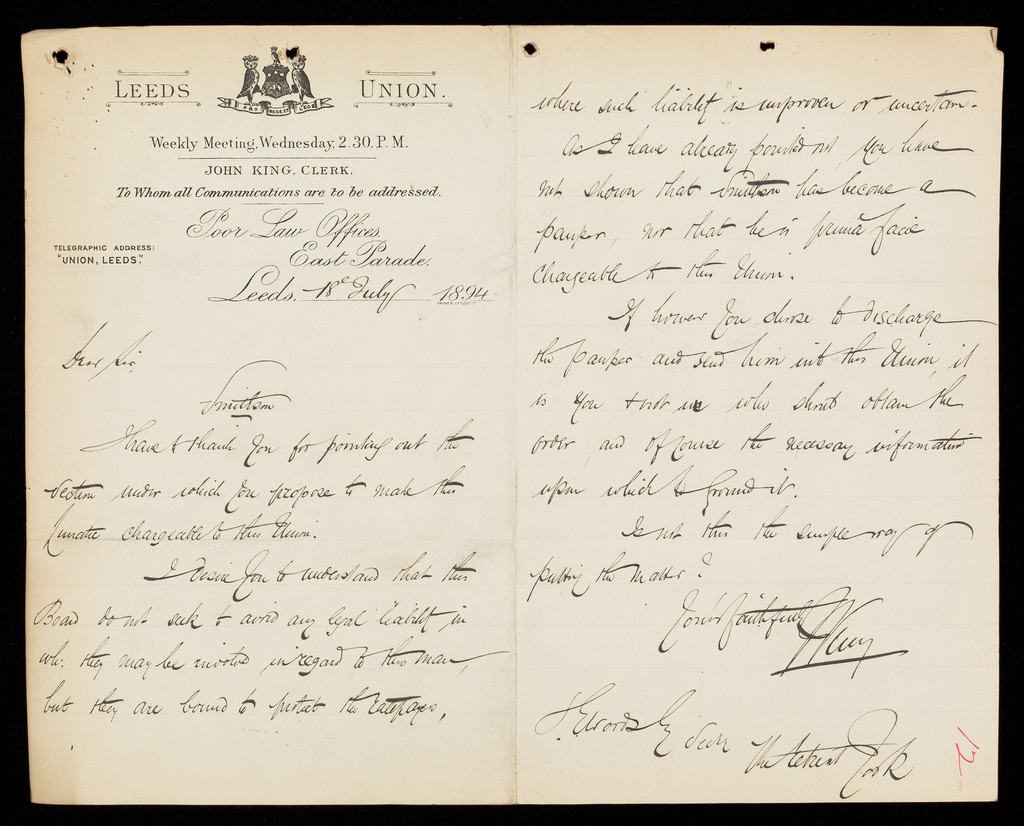 LEEDS UNION.
PRO REGE ET LEGE
Weekly Meeting, Wednesday, 2.30. P.M.
JOHN KING, CLERK.
To Whom all Communications are to be addressed.
Poor Law Offices,
TELEGRAPHIC ADDRESS:
"UNION, LEEDS."
East Parade,
Leeds, 18th July 1894
Dear Sir,
Smithson
I have to thank you for pointing out the
Section under which you propose to make this
Lunatic chargeable to this Union.
I desire you to understand that this
Board do not seek to avoid any legal liability in
wh: they may be involved in regard to this man,
but they are bound to protect the ratepayers,
where such liability is unproven or uncertain.
As I have already pointed out, you have
not shown that Smithson has become a
pauper, nor that he is prima facie
chargeable to this Union.
If however you choose to discharge
the pauper and send him into this Union, it
is you & not us who should obtain the
order, and of course the necessary information
upon which to ground it.
Is not this the simple way of
putting the matter?
Yours faithfully
J King
Esq
Secy
The Retreat York
12